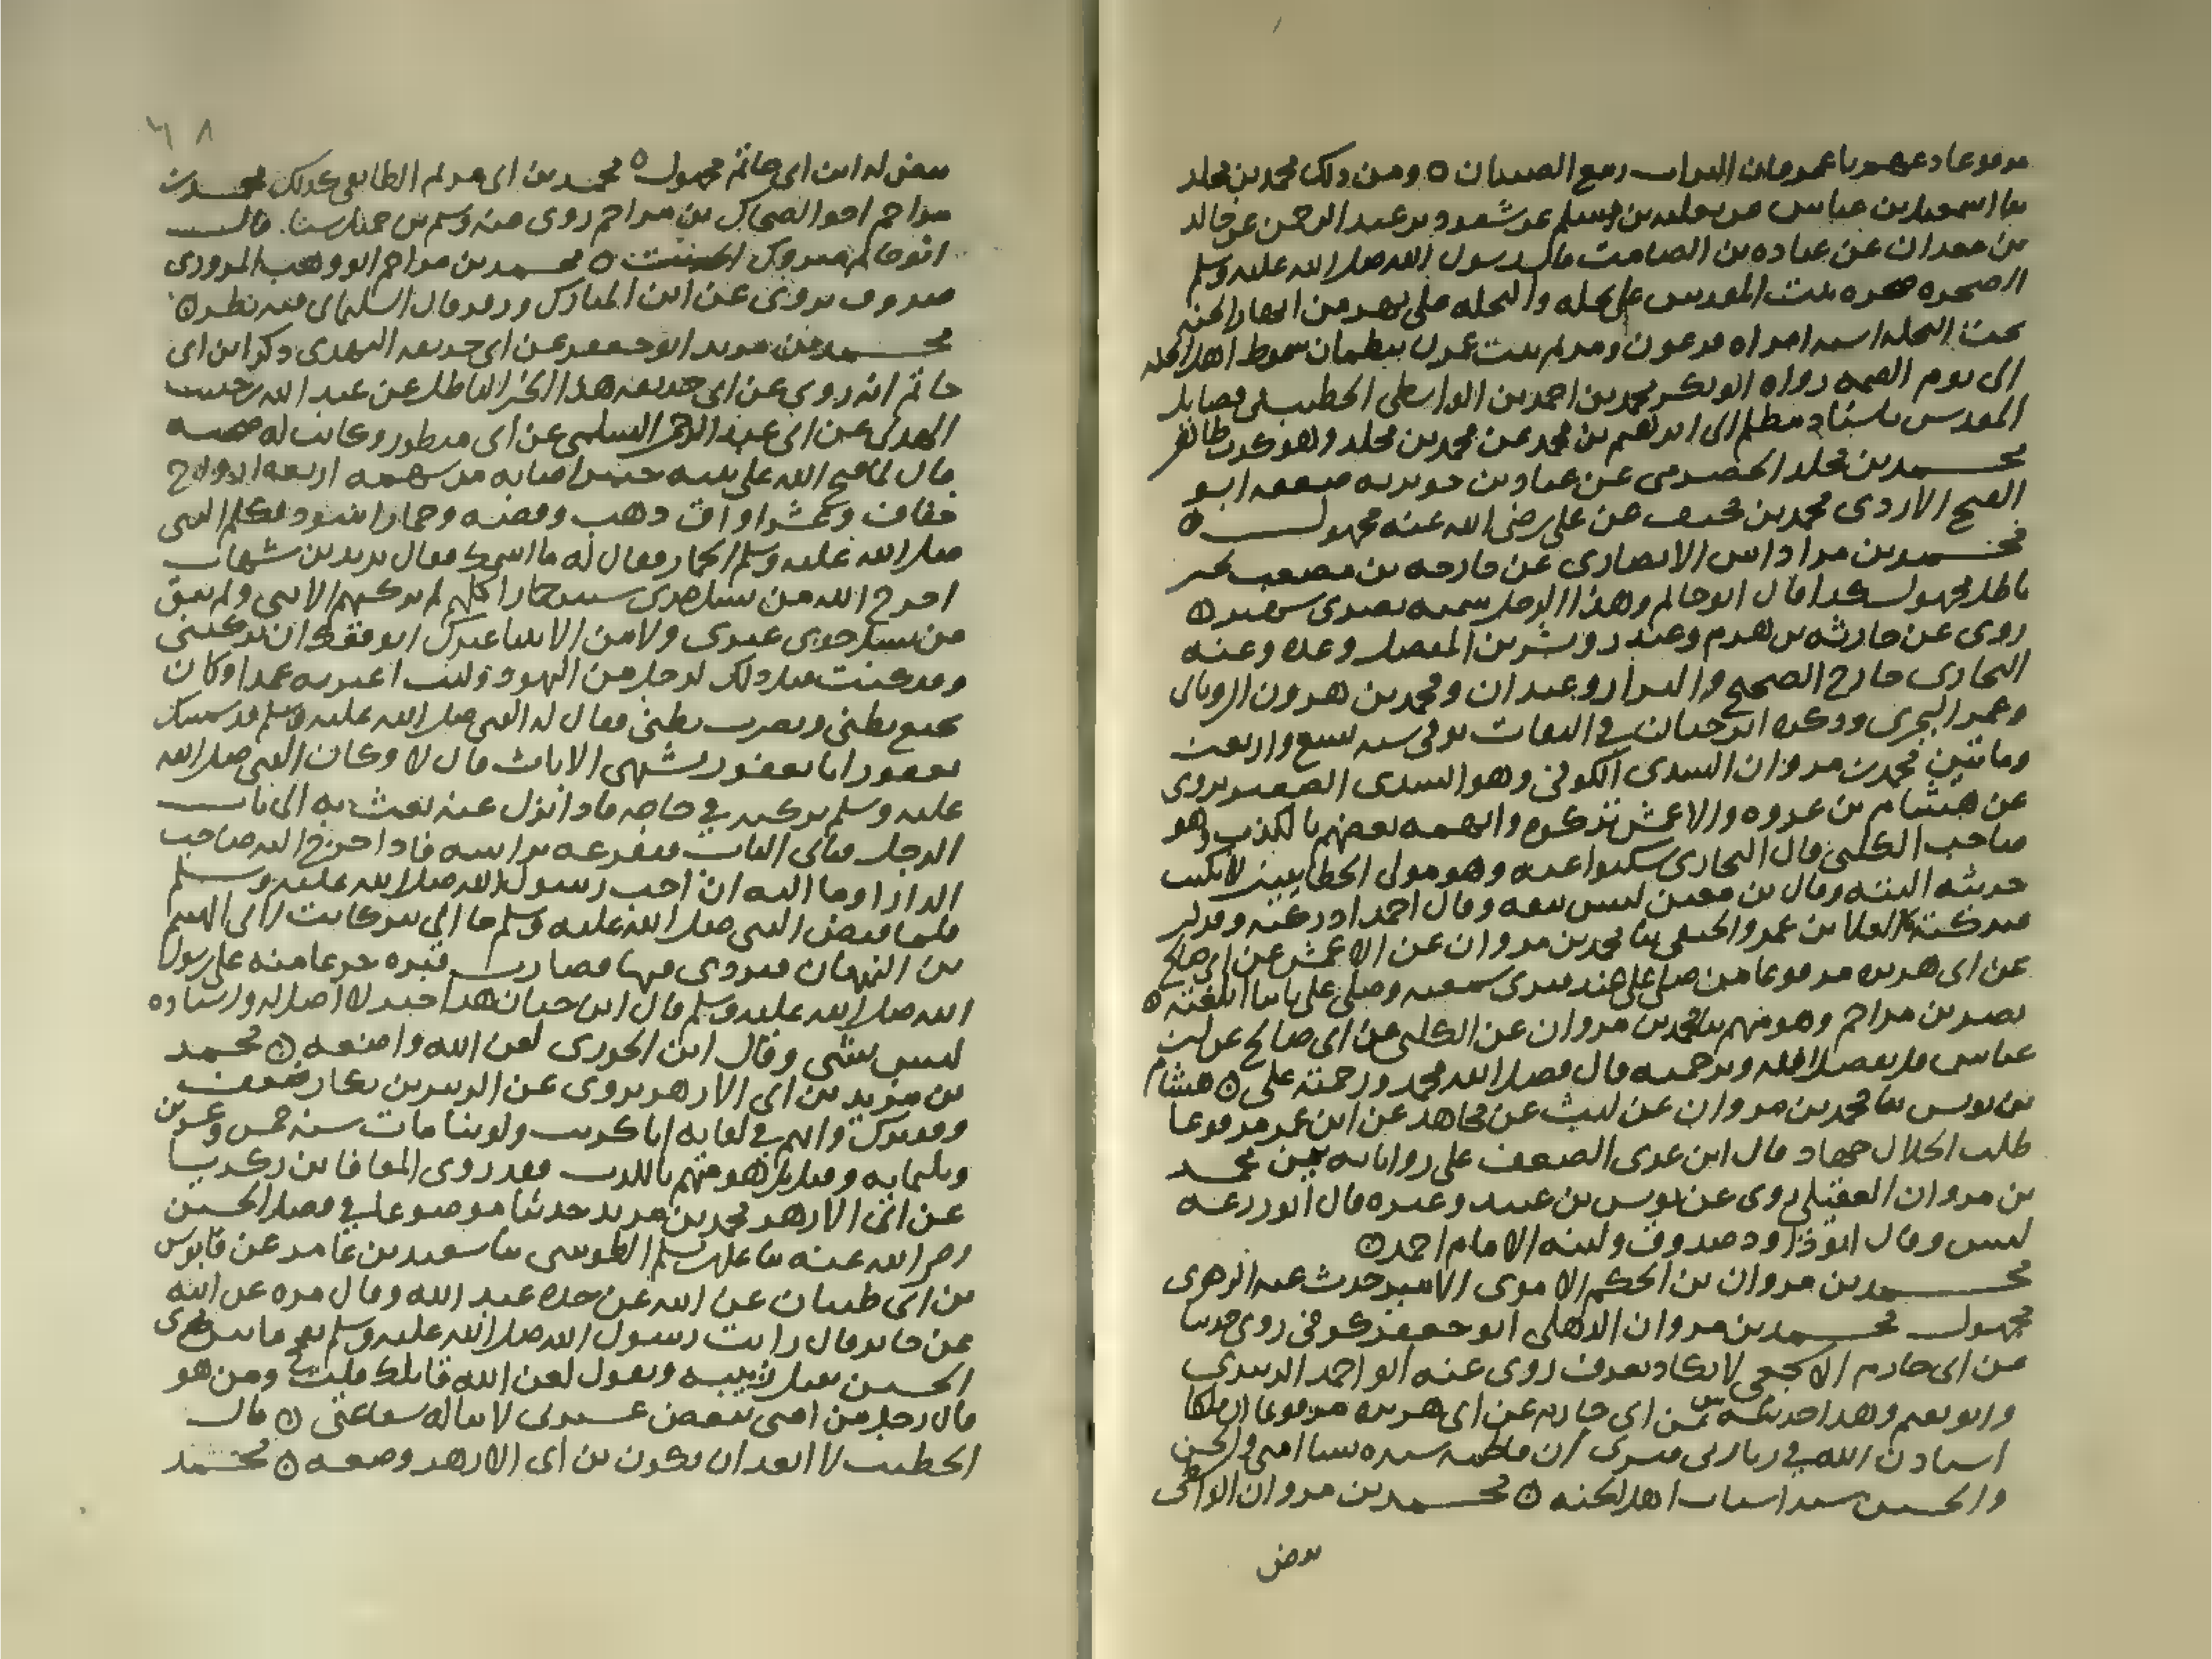 مرفوعا دعهم يا عمر فان التراب ربيع الصبيان ٥ ومن ذلك محمد بن مخلد
بنا اسمعيل بن عياش عن ثعلبه بن مسلم عن مسعود بن عبد الرحمن عن خالد
بن معدان عن عباده بن الصامت قال رسول الله صلى الله عليه وسلم
الصخره صخره بيت المقدس على نخله والنخله على نهر من انهار الجنه
تحت النخله اسيه امراه فرعون ومريم بنت عمران ينظمان سموط اهل الجنه
الى يوم القيمه رواه ابو بكر محمد بن احمد بن الواسطى الخطيب فى فضايل
المقدس باسناد مظلم الى ابرهيم بن محمد عن محمد بن مخلد وهو كذب ظاهر
محمد بن مخلد الحضرمى عن عباد بن جويريه ضعفه ابو
الفتح الازدى محمد بن مخنف عن على رضى الله عنه مجهول ٥
محمد بن مرداس الانصارى عن خارجه بن مصعب بخبر
باطل مجهول كذا قال ابو حاتم وهذا الرجل بصرى ٥
روى عن حارثه بن هرم وعندر وبشر بن المفضل وعده وعنه
البخارى خارج الصحيح والبزار وعبدان ومحمد بن هرون الرويانى
وعمر البجرى وذكره ابن حبان فى الثقات توفى سنه تسع واربعين
ومائتين محمد بن مروان السدى الكوفى وهو السدى الصغير يروى
عن هشام بن عروه والاعمش تركوه واتهمه بعضهم بالكذب وهو
صاحب الكلبى قال البخارى سكتوا عنه وهو مولى الخطابيين لا يكتب
حديثه البته وقال بن معين ليس بثقه وقال احمد ادركته وقد كبر
فتركته العلا بن عمرو الحنفى بنا محمد بن مروان عن الاعمش عن ابى صالح
عن ابى هريره مرفوعا من صلى على عند قبرى سمعته وصلى على نائيا ابلغته ٥
نصر بن مزاحم وهو متهم بنا محمد بن مروان عن الكلبى عن ابى صالح عن ابن
عباس قل بفضل الله وبرحمته قال فضل الله محمد ورحمته على ٥ هشام
بن يونس بنا محمد بن مروان عن ليث عن مجاهد عن ابن عمر مرفوعا
طلب الحلال جهاد قال ابن عدى الضعف على رواياته بين محمد
بن مروان العقيلى روى عن يونس بن عبيد وغيره قال ابو زرعه
ليس وقال ابو داود صدوق ولينه الامام احمد ٥
محمد بن مروان بن الحكم الاموى الامير حدث عنه الزهرى
مجهول محمد بن مروان الذهلى ابو جعفر كوفى روى حديثا
عن ابى حازم الاشجعى لا يكاد يعرف روى عنه ابو احمد الزبيرى
وابو نعيم وهذا حديثه عن ابى حازم عن ابى هريره مرفوعا ان ملكا
استاذن الله فى زيارتى فبشرنى ان فاطمه سيده نسا امتى والحسن
والحسين سيدا شباب اهل الجنه ٥ محمد بن مروان الواسطى
بيض
٦٨
بيض له ابن ابى حاتم مجهول ٥ محمد بن ابى مريم الطايفى كذلك محمد بن
مزاحم اخو الضحاك بن مزاحم روى عنه وسلم بن حميد شيئا. قال
ابو حاتم متروك الحديث ٥ محمد بن مزاحم ابو وهب المروزى
صدوق يروى عن ابن المبارك وزفر قال السليمانى فيه نظر ٥
محمد بن مزيد ابو جعفر عن ابى حذيفه النهدى ذكر ابن
حاتم انه روى عن ابى حذيفه هذا الخبر الباطل عن عبد الله بن حبيب
الهذلى عن ابى عبد الرحمن السلمى عن ابى منظور وكانت له صحبه
قال لما فتح الله على نبيه خيبر اصابه من سهمه اربعه ازواج
خفاف وعشر اواق ذهب وفضه وحمار اسود فكلم النبى
صلى الله عليه وسلم الحمار فقال له ما اسمك فقال يزيد بن شهاب
اخرج الله من نسل جدى ستين حمارا كلهم لم يركبهم الا نبى ولم يبق
من نسل جدى غيرى ولا من الانبيا غيرك اتوقعك ان تركبنى
وقد كنت قبل ذلك لرجل من اليهود وكنت اعثر به عمدا وكان
يجيع بطنى ويضرب بطنى فقال له النبى صلى الله عليه وسلم قد سميتك
يعفور ايا يعفور تشتهى الاناث قال لا وكان النبى صلى الله
عليه وسلم يركبه فى حاجه فاذا نزل عنه بعث به الى باب
الرجل فياتى الباب فيقرعه براسه فاذا خرج اليه صاحب
الدار اوما اليه ان اجب رسول الله صلى الله عليه وسلم
فلما قبض النبى صلى الله عليه وسلم جا الى بير كانت لابى الهيثم
بن التيهان فتردى فيها فصارت قبره جزعا منه على رسول
الله صلى الله عليه وسلم قال ابن حبان هذا خبر لا اصل له واسناده
ليس بشى وقال ابن الجوزى لعن الله واضعه ٥ محمد
بن مزيد بن ابى الازهر يروى عن الزبير بن بكار ضعيف
ومتروك واتهم فى لقايه ابا كريب ولوينا مات سنه خمس وعشرين
وثلثمايه وقيل بل هو متهم بالكذب فقد روى المعافا بن زكريا
عن ابن ابى الازهر محمد بن مزيد حديثا موضوعا فى فضل الحسين
رضى الله عنه بنا على بن مسلم الطوسى بنا سعيد بن عامر عن قابوس
بن ابى ظبيان عن ابيه عن جده عبد الله وقال مره عن ابيه
عن جابر قال رايت رسول الله صلى الله عليه وسلم
الحسين ويقول لعن الله قاتلك قلت ومن هو
قال رجل من امتى يبغض عترتى لا يناله شفاعتى ٥ قال
الخطيب لا ابعد ان يكون بن ابى الازهر وضعه ٥ محمد